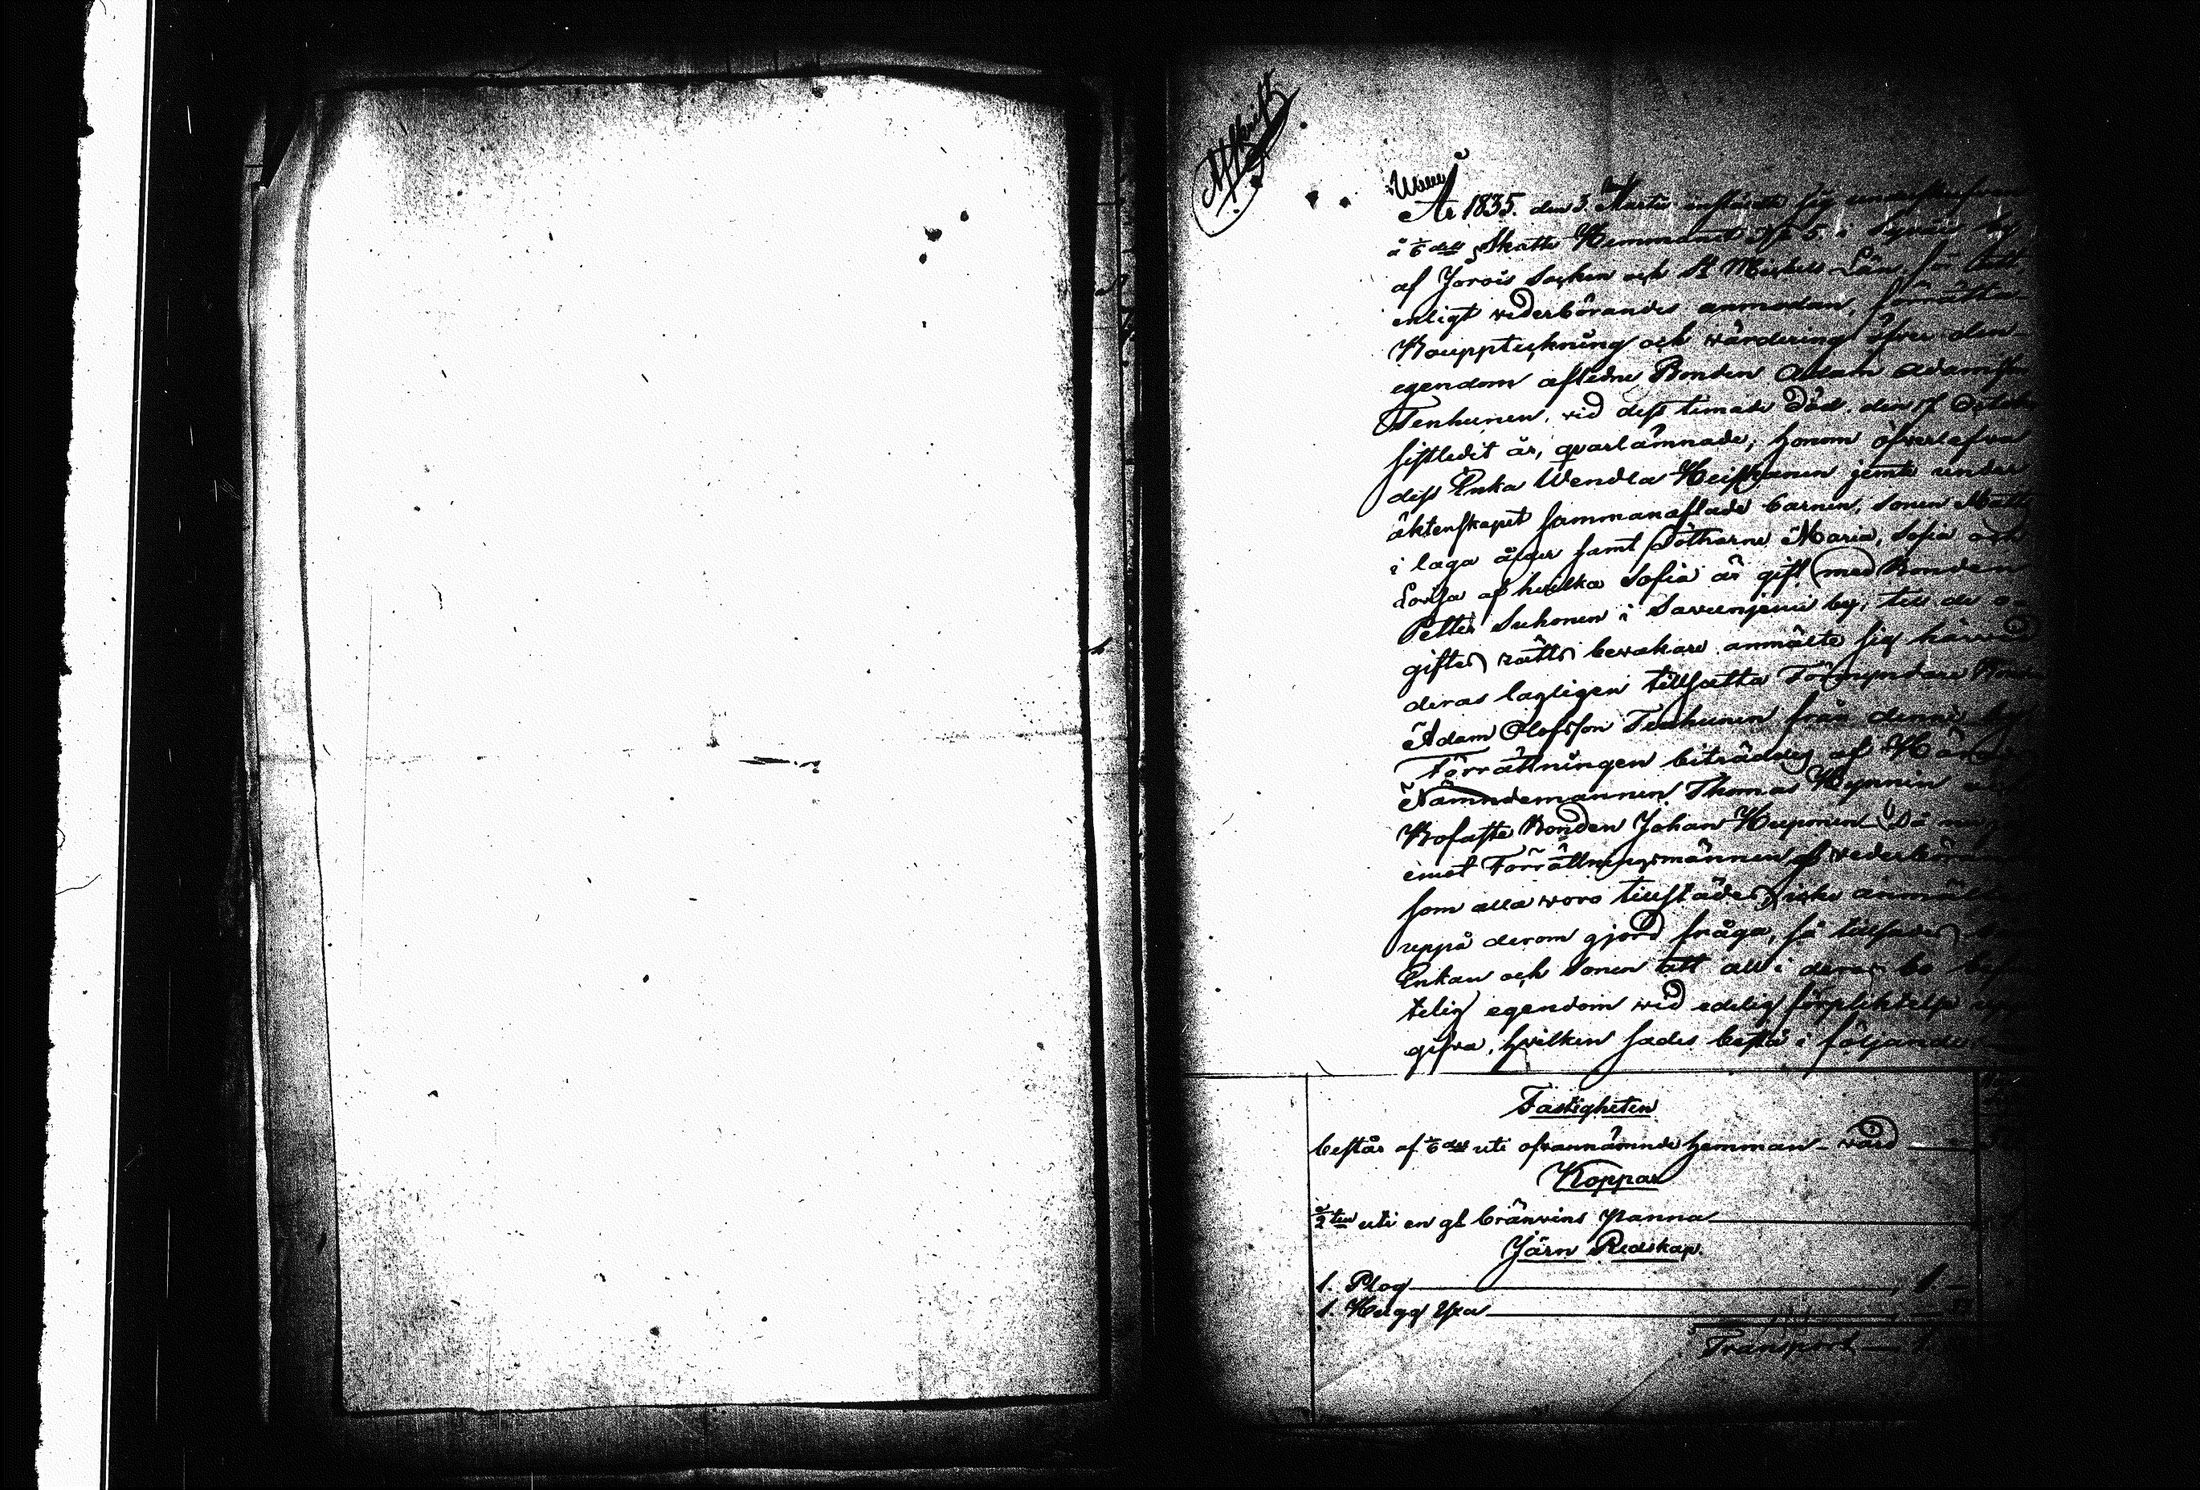 Afskrift
År 1835. den 3. Martii instälde sig undertecknan
å 1/6 del Skatte Hemmanet No 5. i by
af Jorois Socken och St Michels Län, för att,
enligt vederbörandes anmodan, förrätta
Bouppteckning och wärdering öfver den
egendom aflidne Bonden Adam Adamsson
Tenhunen, vid dess timade död den 17 October
sistledit år, qvarlämnade, honom öfverlefva
dess Enka Wendla Heiskanen jemte under
äktenskapet sammanaflade barnen, Sonen Matts
i laga ålder samt Döttrarne Maria, Sofia och
Lovisa af hvilka Sofia är gift med Bonden
Petter Suhonen i Savunjemi by, till de o-
giftes rätts bevakare anmälte sig härvid
deras lagligen tillsatta Förmyndare Bonden
Adam Olofsson Tenhunen från denna by
Förrättningen biträddes af
Nämndemannen Thomas Hynnin
Bofaste Bonden Johan Huponen Då
emot Förrättningsmännen af vederböran
som alla voro tillstädes, icke anmäl
uppå derom gjord fråga, så tillsades
Enkan och Sonen att all i deras bo
telig egendom wid edelig förpliktelse upp
gifva, hvilken sades bestå i följande
Fastigheten
består af 1/6 del uti ofvannämnde hemman värd
Koppar
1/2 ten uti en gl bränvins panna
Järn Redskap.
1. Plog 1 —
1. Hugg Yxa
Transport 1.